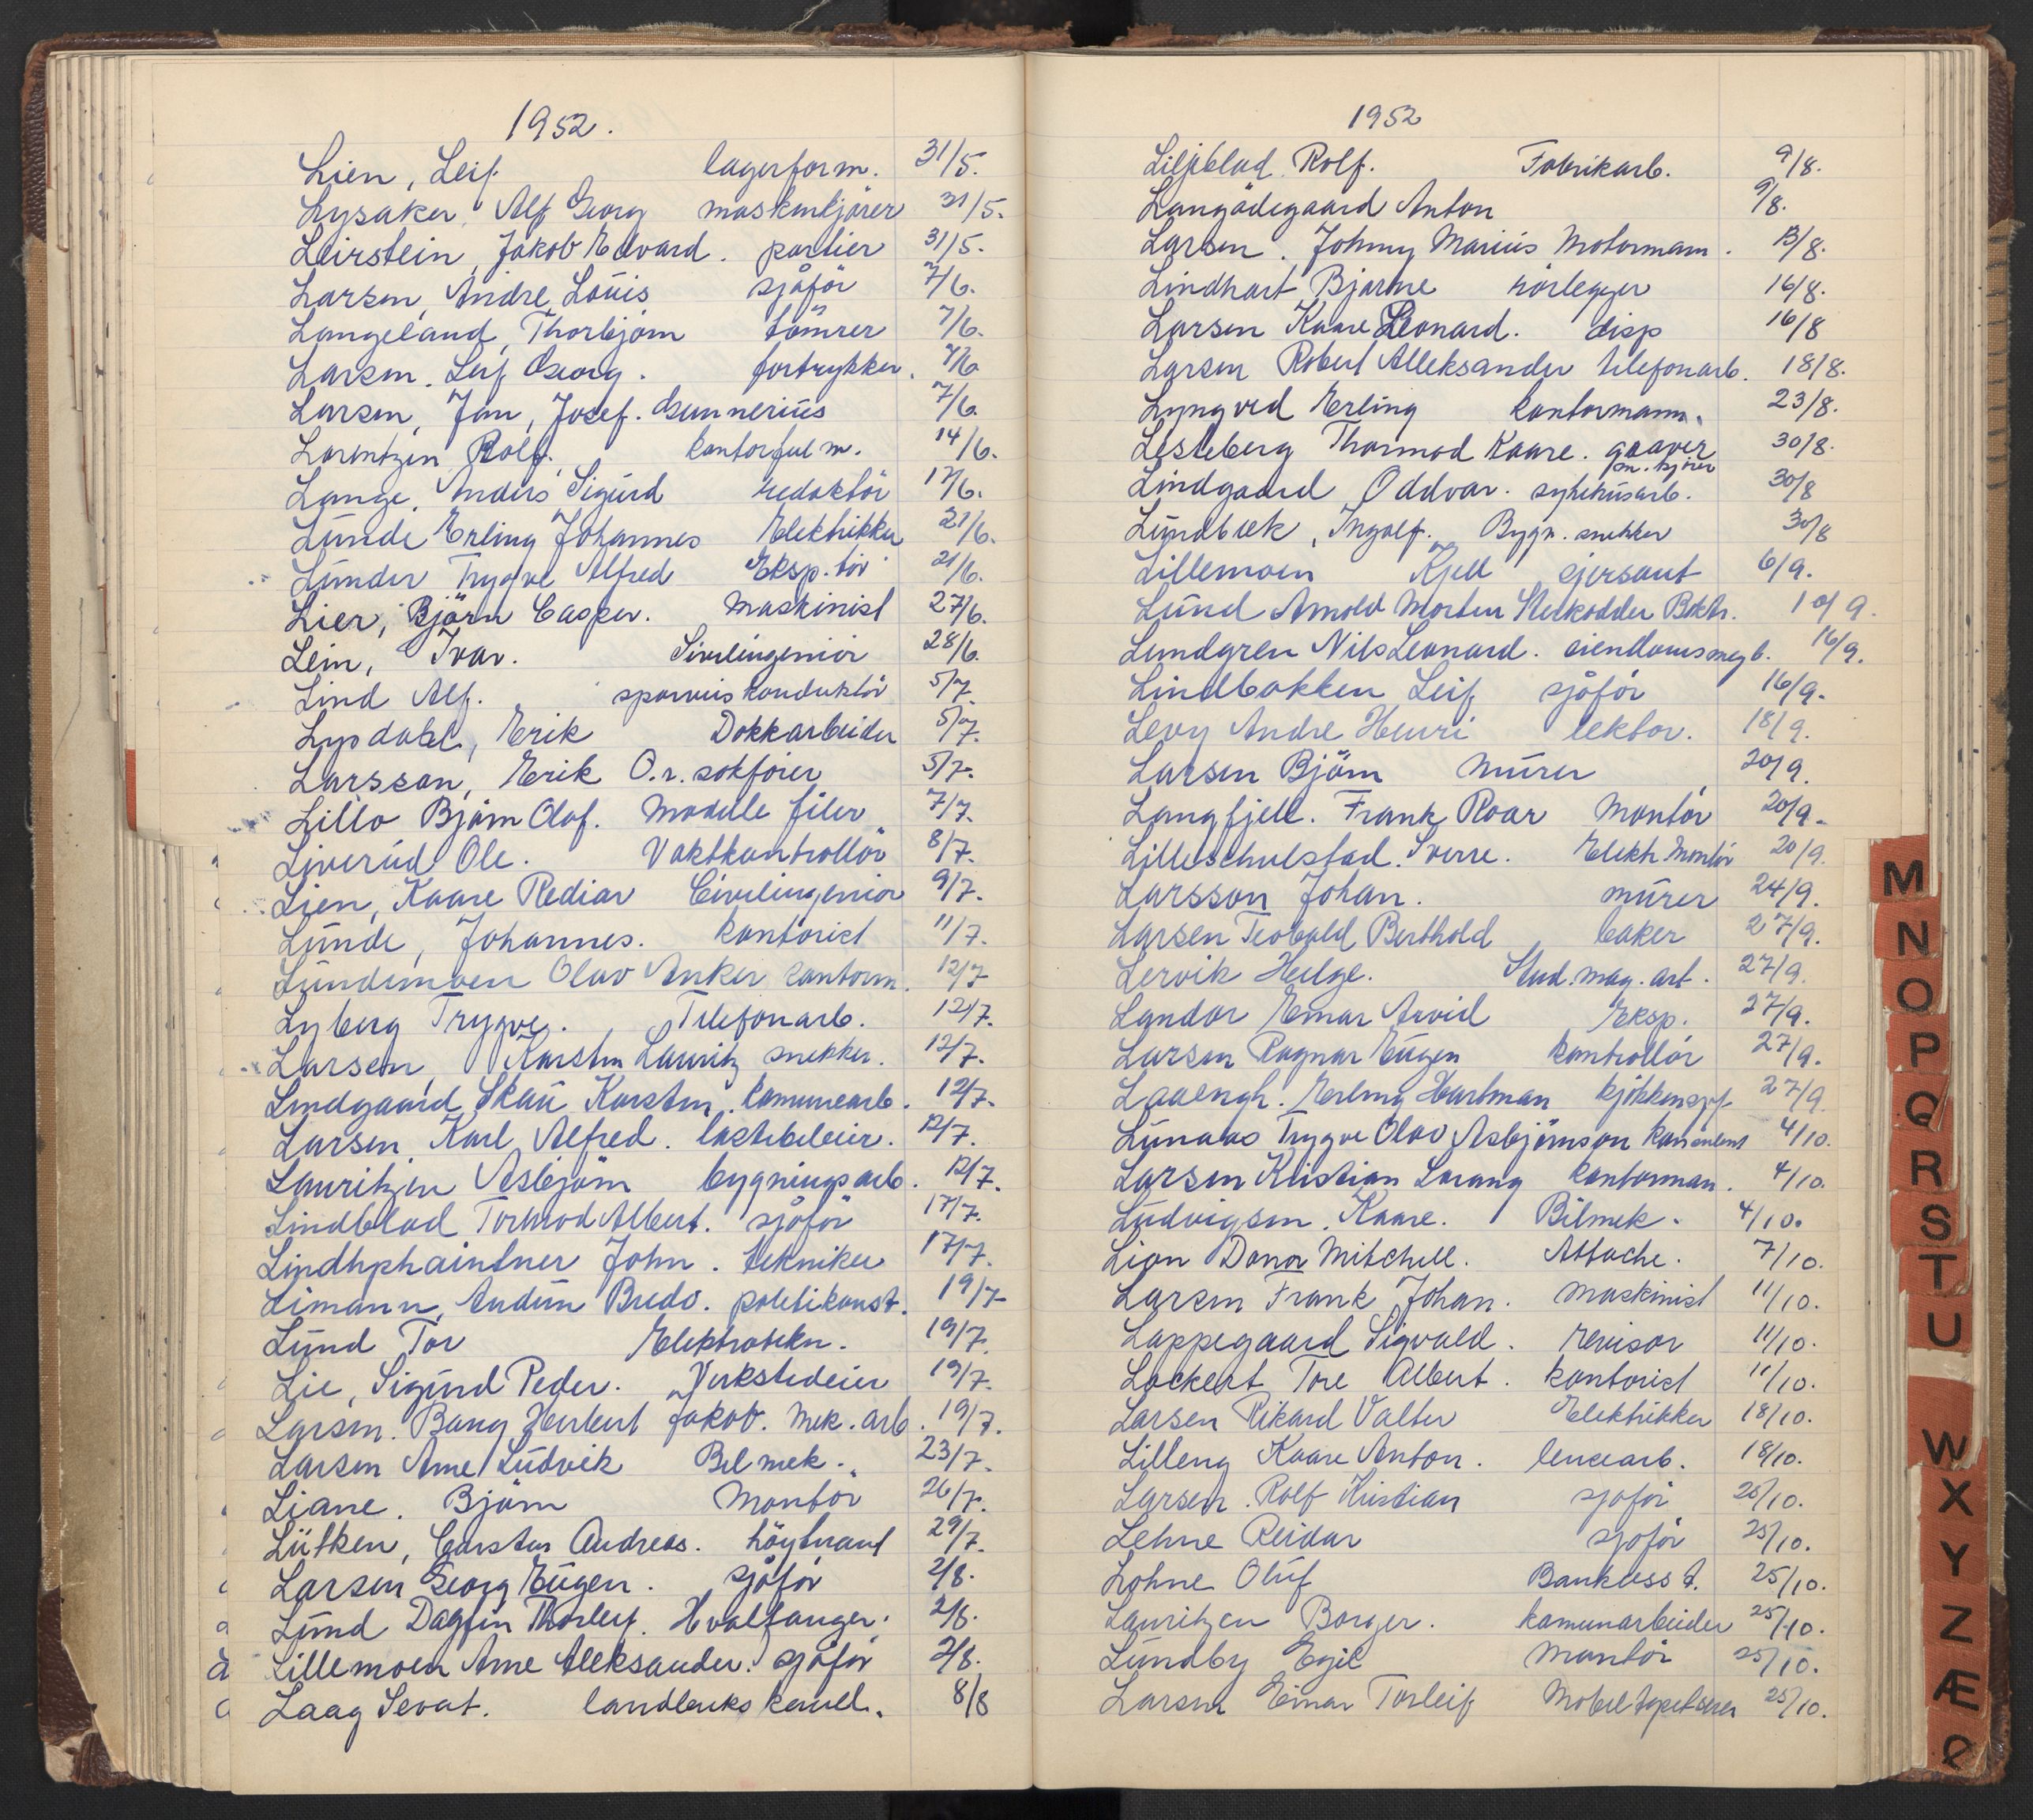 1952.
Lien, Leif. lagerform. 31/5.
Lysaker Alf Georg maskinkjører 31/5.
Leirstein, Jakob Edvard. portier 31/5.
Larsen, Andre Louis sjåför 7/6.
Langeland, Thorbjørn tömrer 7/6.
Larsen. Leif Georg. fortrykker. 7/6
Larsen, Jan, Josef. Gunnerius 7/6.
Lorentzen Rolf. kontorfulm. 14/6.
Lange, Anders Sigurd redaktör 17/6.
Lunde Erling Johannes Elektrikker 21/6.
Lunder Trygve Alfred Eksp. tör 21/6.
Lier, Björn Casper. Maskinist 27/6.
Lein, Ivar. Sivilingeniör 28/6.
Lind Alf. sporveiskonduktör 5/7.
Lysdahl, Erik Dokkarbeider 5/7.
Larsson, Erik O.r. sakförer 5/7.
Lillo Björn Olaf. Modelle filer 7/7.
Liverud Ole. Vaktkontrollör 8/7.
Lien, Kaare Rediar Civilingeniör 9/7.
Lunde, Johannes. kontorist 11/7.
Lundemoen Olav Anker kontorm. 12/7
Lyberg Trygve. Telefonarb. 12/7.
Larsen, Karsten Lauritz snekker. 12/7.
Lindgaard Skau Karsten. komunearb. 12/7.
Larsen, Karl Alfred. lastebileier. 12/7.
Lauritzen Asbjörn bygningsarb. 12/7.
Lindblad Tormod Albert. sjåför 17/7.
Lindhphaintner John. tekniker 17/7.
Limann, Audun Bredo. politikonst. 19/7
Lund Tor Elektrotekn. 19/7.
Lie, Sigurd Peder. Verkstedeier 19/7.
Larsen. Bang Herbert Jakob. Mek. arb. 19/7.
Larsen Arne Ludvik Bilmek. 23/7.
Liane. Björn Montör 26/7.
Lütken, Carsten Andreas. löytnant 29/7.
Larsen Georg Eugen. sjåför 2/8.
Lund Dagfin Thorleif. Hvalfanger. 2/8.
Lillemoen Arne Aleksander. sjåför 2/8.
Laag Sevat. landbruks kand. 8/8
1952
Liljeblad Rolf. Fabrikarb. 9/8.
Langødegaard Anton 9/8.
Larsen. Johnny Marius Motormann. 13/8.
Lindhart Bjarne rörlegger 16/8.
Larsen Kaare Leonard. disp 16/8
Larsen Robert Alleksander telefonarb. 18/8.
Lyngved Erling kontormann. 23/8.
Lesteberg Thormod Kaare. graver 30/8.
Lindgaard Oddvar. sykehusarb. 30/8
Lundbæk, Ingolf. Bygn. snekker 30/8
Lillemoen Kjell sjersant 6/9.
Lund Arnold Morten Boktr. 10/9.
Lundgren Nils Leonard. eiendomsmegl. 16/9.
Lindbakken Leif sjåför 16/9.
Levy Andre Henri lektor. 18/9.
Larsen Björn murer 20/9.
Langfjell. Frank Roar Montör 20/9.
Lilleschulstad. Sverre. Elektr. Montör 20/9.
Larsson Johan. murer 24/9.
Larsen Teobald Berthold baker 27/9.
Lervik Helge. Stud. mag. art. 27/9.
Landor Einar Arvid Eksp. 27/9.
Larsen Ragnar Eugen kontrollör 27/9.
Laaengh. Erling Hartman 27/9
Lunaas Trygve Olav Asbjörnson konsulent 4/10.
Larsen Kristian Lorang kontorman. 4/10.
Ludvigsen. Kaare. Bilmek. 4/10.
Lion Donor Mitchell. Attache. 7/10.
Larsen Frank Johan. Maskinist 11/10.
Lappegaard Sigvald. revisor 11/10.
Lockert Tore Albert. kontorist 11/10.
Larsen Rikard Valter Elektrikker 18/10.
Lilleng Kaare Anton. 18/10.
Larsen. Rolf Kristian sjåför 25/10.
Lehne Reidar sjåför 25/10.
Lohne Oluf Bankass. 25/10.
Lauritzen Borger. komunarbeider 25/10.
Lundby Egil Montör 25/10.
Larsen Einar Torleif Möbeltapetserer 25/10.
M
N
O
P
Q
R
S
T
U
W
X
Y
Z
Æ